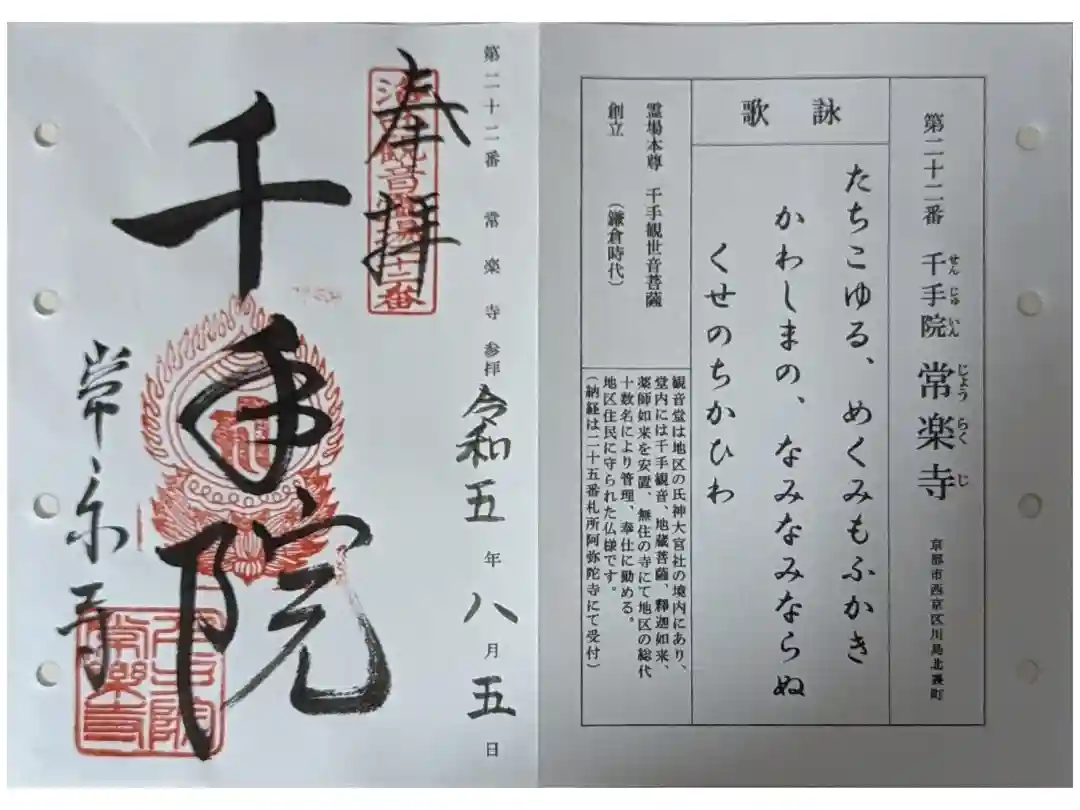 第二十二番 千手院 常楽寺
せんじゅいん じょうらくじ
京都市西京区川島北裏町
詠歌
たちこゆる、めくみもふかき
かわしまの、なみなみならぬ
くせのちかひわ
霊場本尊 千手観世音菩薩
創立 (鎌倉時代)
観音堂は地区の氏神大宮社の境内にあり、
堂内には千手観音、地蔵菩薩、釋迦如来、
薬師如来を安置、無住の寺にて地区の総代
十数名により管理、奉仕に勤める。
地区住民に守られた仏様です。
(納経は二十五番札所阿弥陀寺にて受付)
第二十二番 常楽寺参拝 令和五年八月五日
奉拝
千手院
常楽寺
千手院
常樂寺